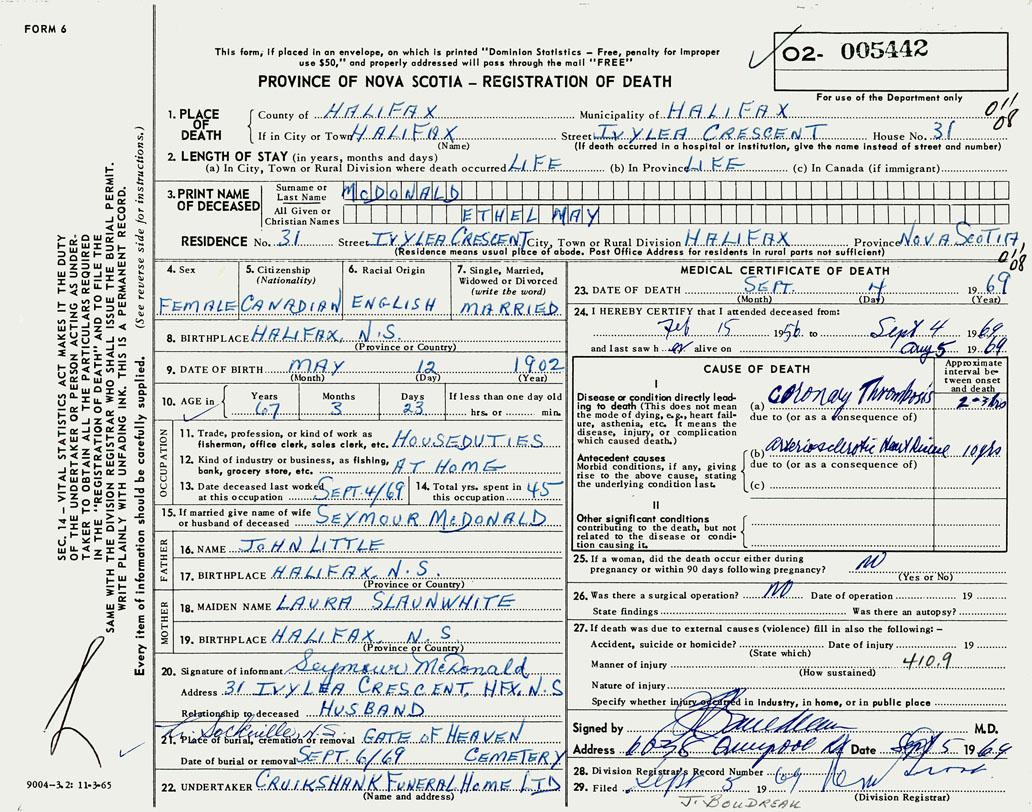 FORM 6
This form, if placed in an envelope, on which is printed "Dominion Statistics – Free, penalty for improper
use $50," and properly addressed will pass through the mail "FREE"
PROVINCE OF NOVA SCOTIA – REGISTRATION OF DEATH
02- 005442
For use of the Department only
011/08
1. PLACE OF DEATH
County of HALIFAX Municipality of HALIFAX
If in City or Town HALIFAX (Name) Street IVYLEA CRESCENT House No. 31
(If death occurred in a hospital or institution, give the name instead of street and number)
2. LENGTH OF STAY (in years, months and days)
(a) In City, Town or Rural Division where death occurred LIFE (b) In Province LIFE (c) In Canada (if immigrant)
3. PRINT NAME OF DECEASED
Surname or Last Name McDONALD
All Given or Christian Names ETHEL MAY
RESIDENCE No. 31 Street IVYLEA CRESCENT City, Town or Rural Division HALIFAX Province NOVA SCOTIA
(Residence means usual place of abode. Post Office Address for residents in rural parts not sufficient)
011/08
4. Sex
FEMALE
5. Citizenship (Nationality)
CANADIAN
6. Racial Origin
ENGLISH
7. Single, Married, Widowed or Divorced (write the word)
MARRIED
8. BIRTHPLACE HALIFAX, N.S.
(Province or Country)
9. DATE OF BIRTH MAY 12 1902
(Month) (Day) (Year)
10. AGE in Years 67 Months 3 Days 23 If less than one day old hrs. or min.
OCCUPATION
11. Trade, profession, or kind of work as fishermen, office clerk, sales clerk, etc. HOUSEDUTIES
12. Kind of industry or business, as fishing, bank, grocery store, etc. AT HOME
13. Date deceased last worked at this occupation SEPT. 4/69
14. Total yrs. spent in this occupation 45
15. If married give name of wife or husband of deceased SEYMOUR McDONALD
FATHER
16. NAME JOHN LITTLE
17. BIRTHPLACE HALIFAX, N.S.
(Province or Country)
MOTHER
18. MAIDEN NAME LAURA SLAUNWHITE
19. BIRTHPLACE HALIFAX, N.S
(Province or Country)
20. Signature of informant Seymour McDonald
Address 31 IVYLEA CRESCENT, HFX, N.S
Relationship to deceased HUSBAND
Sackville N.S
21. Place of burial, cremation or removal GATE OF HEAVEN
Date of burial or removal SEPT. 6/69 CEMETERY
22. UNDERTAKER CRUIKSHANK FUNERAL HOME LTD
(Name and address)
MEDICAL CERTIFICATE OF DEATH
23. DATE OF DEATH SEPT. 4 1969
(Month) (Day) (Year)
24. I HEREBY CERTIFY that I attended deceased from:
Feb 15 1956 to Sept 4 1969
and last saw h er alive on Aug 5 1969
CAUSE OF DEATH
Approximate interval between onset and death
I
Disease or condition directly leading to death (This does not mean the mode of dying, e.g., heart failure, asthenia, etc. It means the disease, injury, or complication which caused death.)
(a) Coronary Thrombosis 2-3 hrs
due to (or as a consequence of)
Antecedent causes
Morbid conditions, if any, giving rise to the above cause, stating the underlying condition last.
(b) arteriosclerotic Heart Disease 10 yrs
due to (or as a consequence of)
(c)
II
Other significant conditions
contributing to the death, but not related to the disease or condition causing it.
25. If a woman, did the death occur either during pregnancy or within 90 days following pregnancy? NO
(Yes or No)
26. Was there a surgical operation? NO Date of operation 19
State findings Was there an autopsy?
27. If death was due to external causes (violence) fill in also the following: –
Accident, suicide or homicide? Date of injury 19
(State which)
Manner of injury 410.9
(How sustained)
Nature of injury
Specify whether injury occurred in Industry, in home, or in public place
Signed by M.D.
Address Date Sept 5 1969
28. Division Registrar's Record Number
29. Filed Sept 5 1969
(Division Registrar)
J. BOUDREAU
SEC. 14 – VITAL STATISTICS ACT MAKES IT THE DUTY
OF THE UNDERTAKER OR PERSON ACTING AS UNDER-
TAKER TO OBTAIN ALL THE PARTICULARS REQUIRED
IN THE "REGISTRATION OF DEATH" AND TO FILE THE
SAME WITH THE DIVISION REGISTRAR WHO SHALL ISSUE THE BURIAL PERMIT.
WRITE PLAINLY WITH UNFADING INK. THIS IS A PERMANENT RECORD.
Every item of information should be carefully supplied. (See reverse side for instructions.)
9004-3.2: 11-3-65